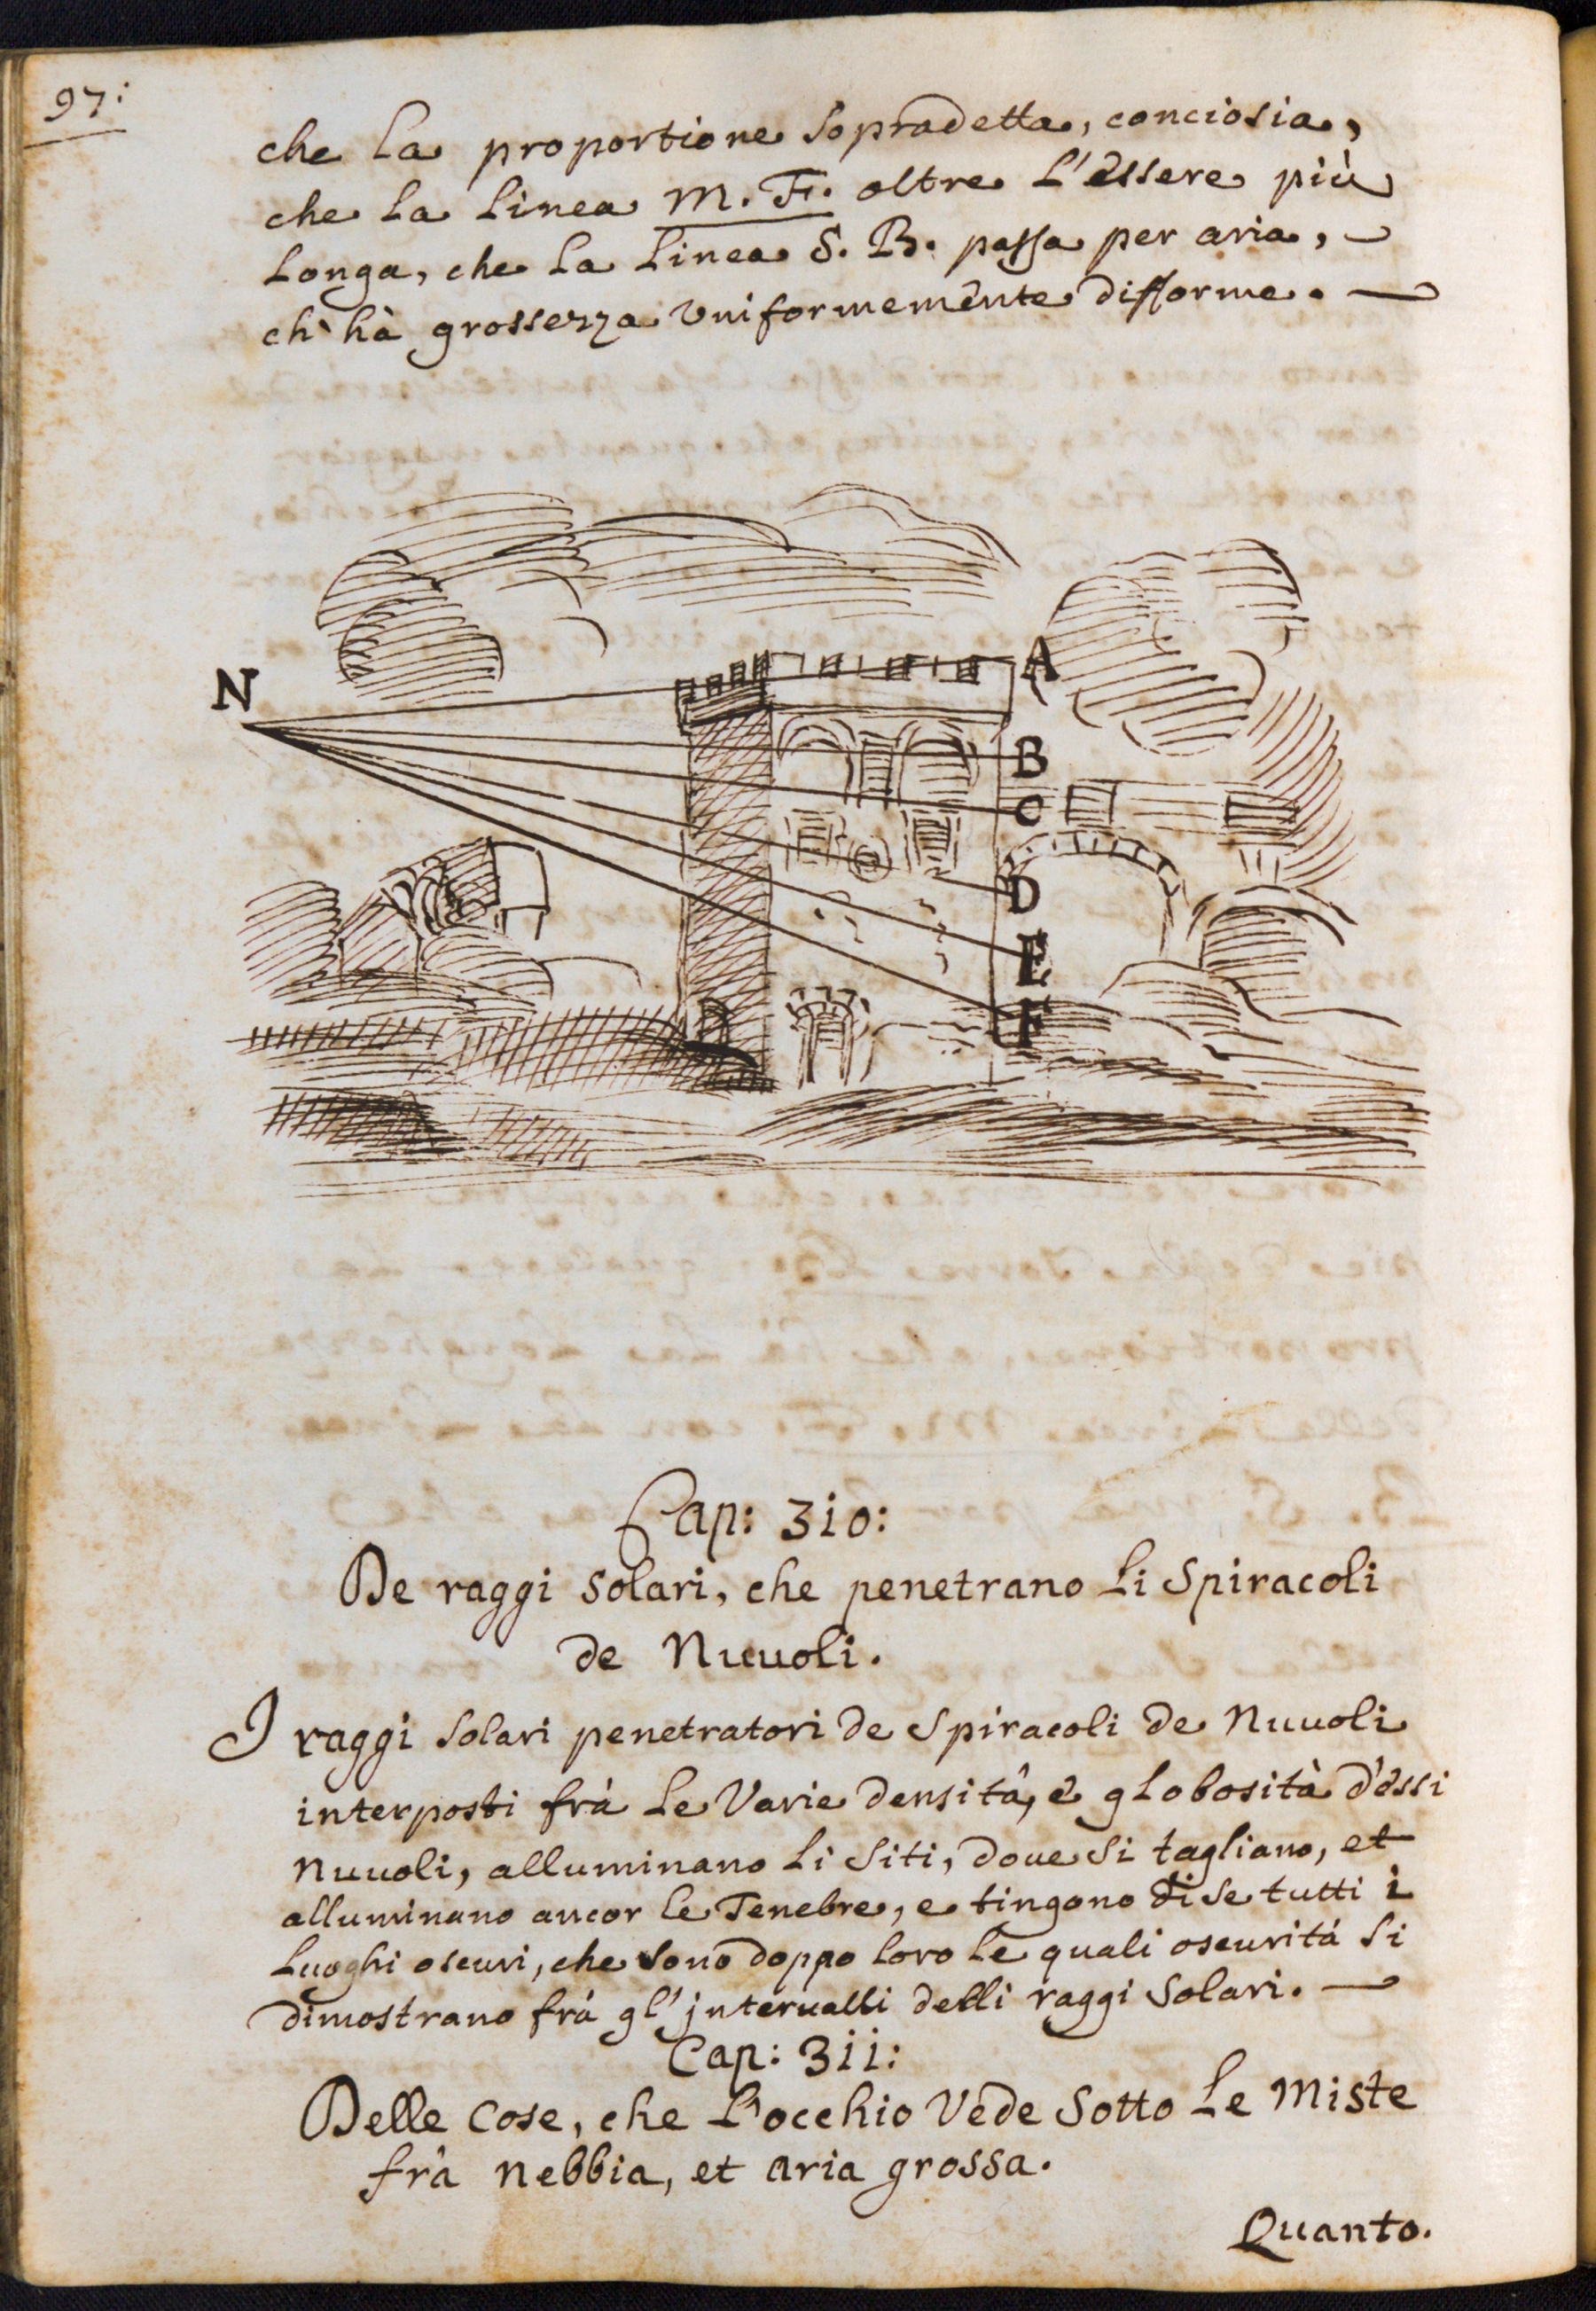 97:
che la proportione sopradetta, conciosia,
che la linea M. F. oltre l'èssere più
longa, che la linea S. B. passa per aria,
ch' hà grossezza uniformemênte difforme.
N
A
B
C
D
E
F
Cap: 310:
De raggi solari, che penetrano li spiracoli
de Nuuoli.
I raggi solari penetratori de spiracoli de Nuuoli
interposti frà le Varie densità, è globosità d'èssi
Nuuoli, alluminano li siti, doue si tagliano, et
alluminano ancor le Tenebre, e tingono di se tutti i
Luoghi oscuri, che sono doppo loro le quali oscurità si
dimostrano frà gl'jnterualli delli raggi solari.
Cap: 311:
Delle cose, che l'occhio Vede sotto le Miste
frà nebbia, et aria grossa.
Quanto.